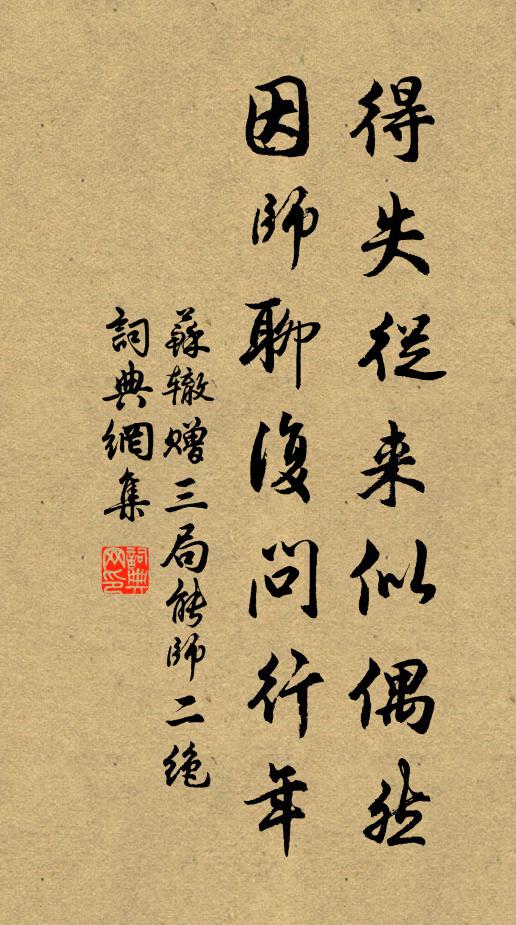 得失從来似偶然
因師聊復問行年
蘇辙贈三局能師二绝
詞典網集
詞典網印